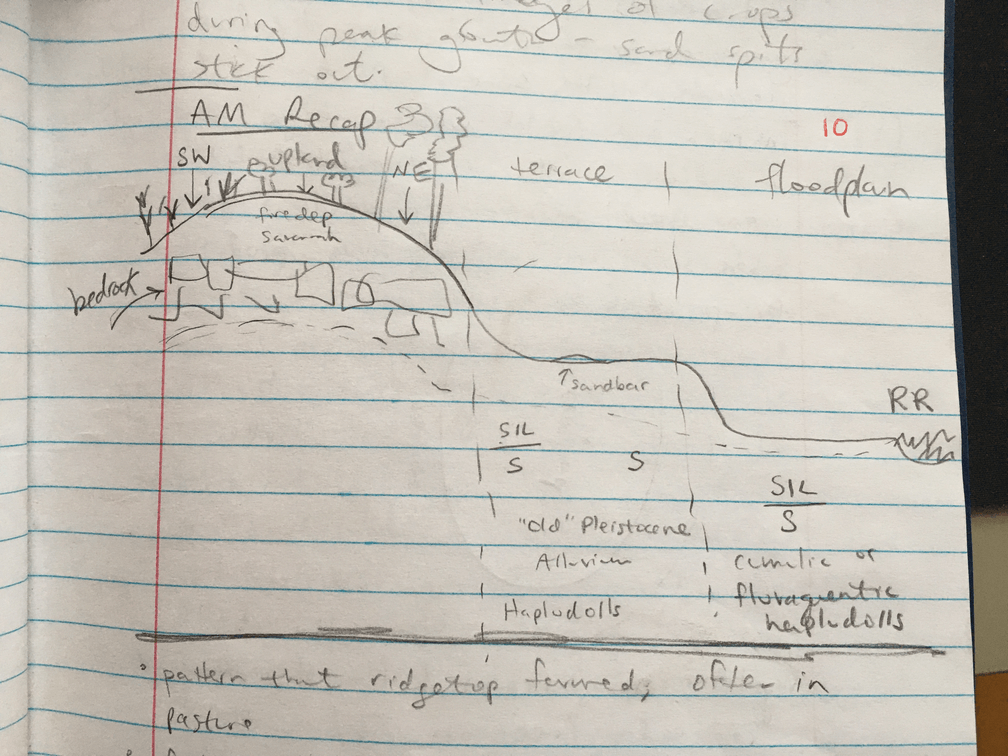 images of crops
during peak growth - sand spits
stick out.
AM Recap
10
SW
upland
NE
terrace
floodplain
fire dep
Savannah
bedrock
↑sandbar
RR
SIL
S
S
SIL
S
"old" Pleistocene
Alluvium
cumulic or
fluvaquentic
hapludolls
Hapludolls
• pattern that ridgetop farmed, often in
pasture